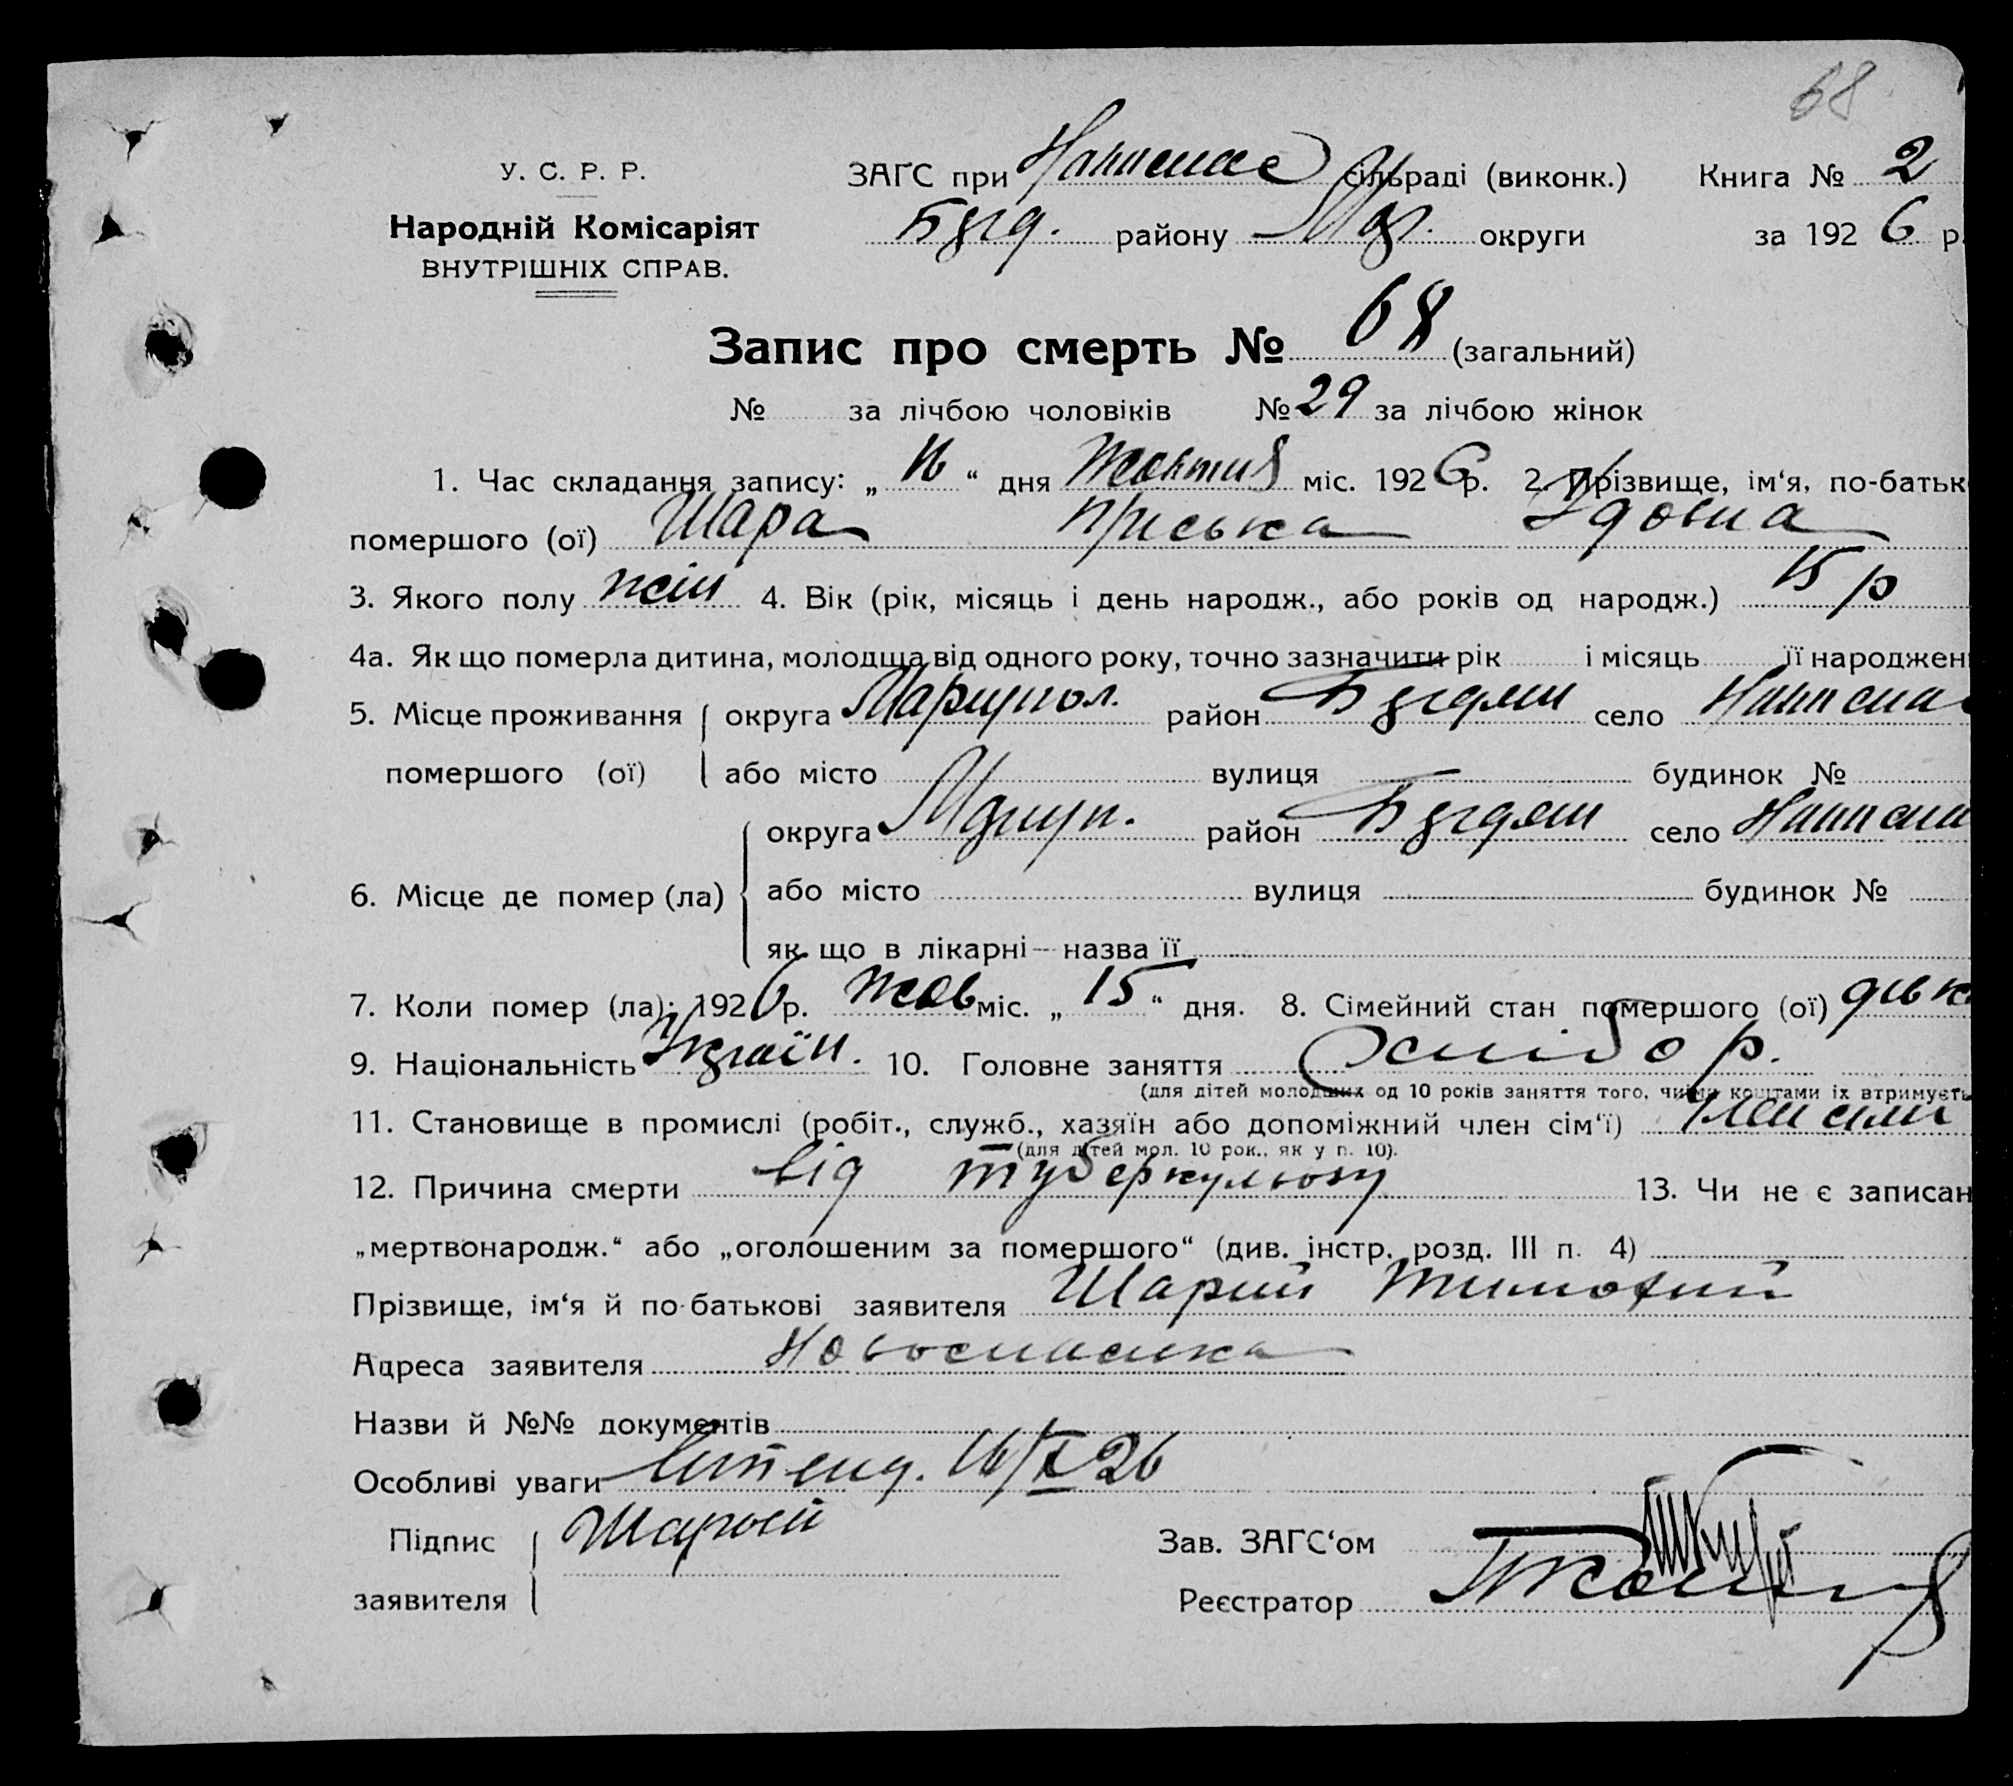 68
У. С. Р. Р.
Народній Комісаріят
ВНУТРІШНІХ СПРАВ.
ЗАГС при сільраді (виконк.) Книга № 2
району Мар. округи за 1926 р.
Запис про смерть № 68 (загальний)
№ за лічбою чоловіків № 29 за лічбою жінок
1. Час складання запису: „16“ дня Жовтня міс. 1926 р. 2. Прізвище, ім‘я, по-батьк
помершого (ої) Шара Приська
3. Якого полу жін 4. Вік (рік, місяць і день народж., або років од народж.) 15 р
4а. Як що померла дитина, молодша від одного року, точно зазначити рік і місяць її народжен
5. Місце проживання округа Маріупол. район село
помершого (ої) або місто вулиця будинок №
округа район село
6. Місце де помер (ла) або місто вулиця будинок №
як що в лікарні — назва її
7. Коли помер (ла): 1926 р. Жов міс. „15“ дня. 8. Сімейний стан помершого (ої) дівк
9. Національність Україн. 10. Головне заняття
(для дітей молодших од 10 років заняття того, чиїми коштами їх втримуєть
11. Становище в промислі (робіт., служб., хазяїн або допоміжний член сім‘ї) член сім
(для дітей мол. 10 рок., як у п. 10).
12. Причина смерти від туберкульозу 13. Чи не є записан
„мертвонародж.“ або „оголошеним за помершого“ (див. інстр. розд. III п. 4)
Прізвище, ім‘я й по-батькові заявителя Шарий Тимофій
Адреса заявителя Новоспасівка
Назви й №№ документів
Особливі уваги 16/X 26
Підпис Шарий Зав. ЗАГС‘ом
заявителя Реєстратор